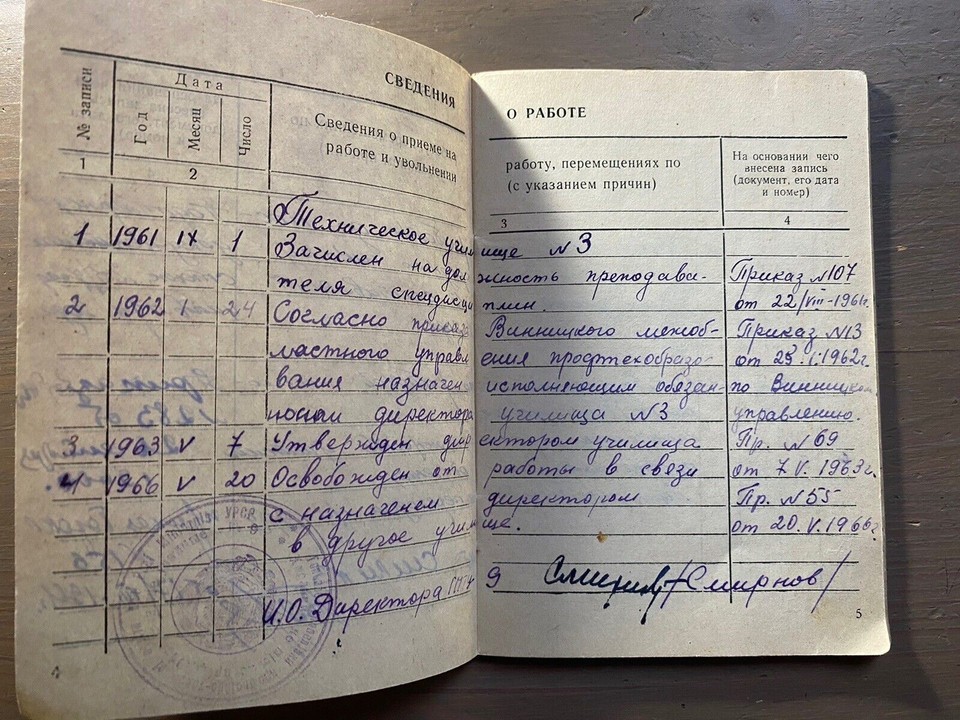 СВЕДЕНИЯ О РАБОТЕ
№ записи
Дата
Год
Месяц
Число
Сведения о приеме на работу, перемещениях по
работе и увольнении (с указанием причин)
На основании чего
внесена запись
(документ, его дата
и номер)
1 2 3 4
Техническое училище №3
1 1961 IX 1 Зачислен на должность преподава- Приказ №107
теля спецдисциплин. от 22/VIII-1961г.
2 1962 I 24 Согласно приказа Винницкого межоб- Приказ №13
ластного управления профтехобразо- от 23.I.1962г.
вания назначен исполняющим обязан- по Винницком
ности директора училища №3 управлению.
3 1963 V 7 Утвержден директором училища Пр. №69
4 1966 V 20 Освобожден от работы в связи от 7.V.1963г.
с назначенем директором Пр. №55
в другое училище. от 20.V.1966г.
И.О. Директора 9 /Смирнов/
УРСР
4
5